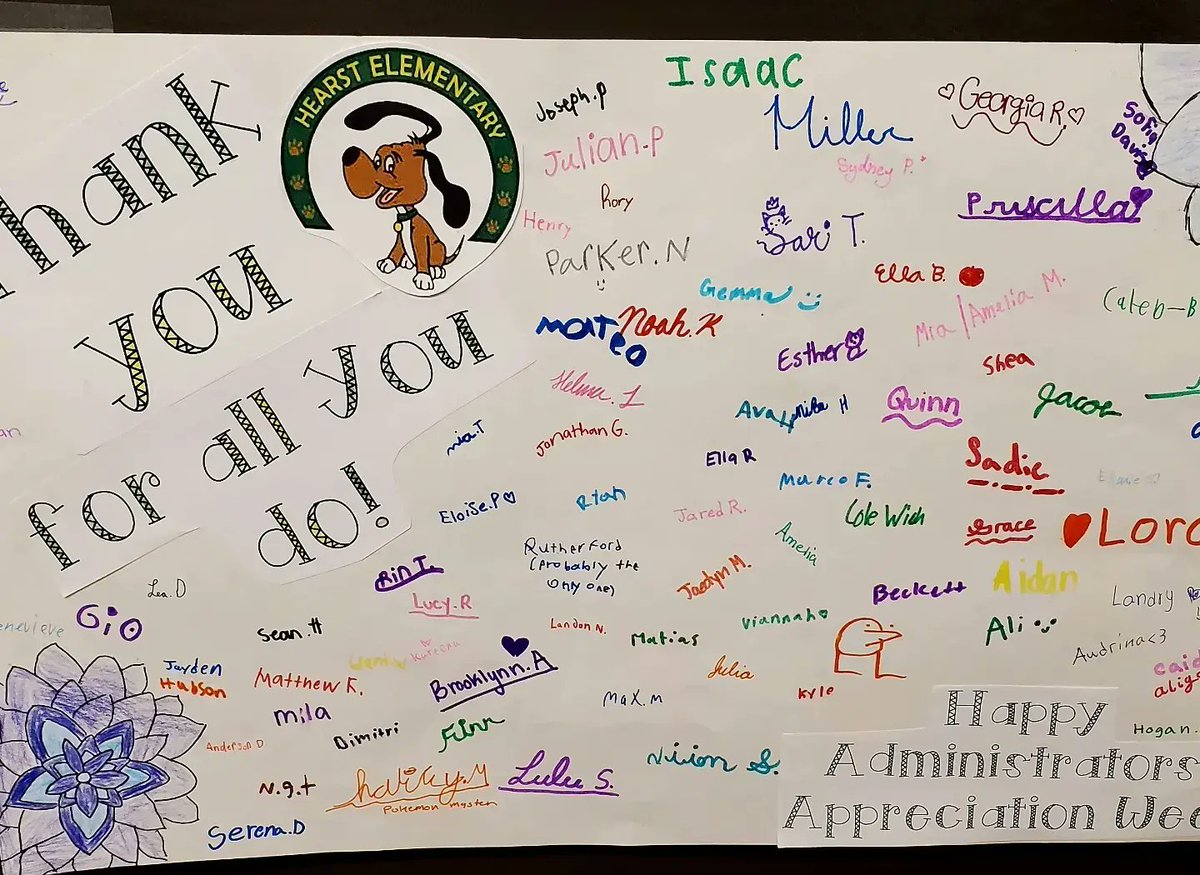 Thank
you
for all you
do!
HEARST ELEMENTARY
Joseph.p
Isaac
Miller
Georgia R.
Sofia
Davis
Julian.P
Sydney P.
Rory
Henry
Priscilla
Sari T.
Parker.N
Ella B.
Gemma
Mia/Amelia M.
Caleb-B
Mateo
Noah.K
Esther
Shea
Helena. I
Ava
Mike H
Quinn
Jacob
mia.T
Jonathan G.
Ella R
Sadie
Marco F.
Eloise.P
Rian
Jared R.
Cole Wich
Grace
Amelia
Rutherford
(probably the
only one)
Rin I.
Jaedyn M.
Beckett
Aidan
Landry
Lea.D
Lucy.R
Gio
Sean.H
Landon N.
Matias
Viannah
Ali
Audrina<3
Jayden
Hudson
Matthew K.
Brooklynn.A
Julia
Kyle
Max.m
mila
Dimitri
Finn
Anderson D
Hogan.
N.g.t
harley.M
Pokemon master
Lulu S.
Serena.D
Happy
Administrators
Appreciation Wee